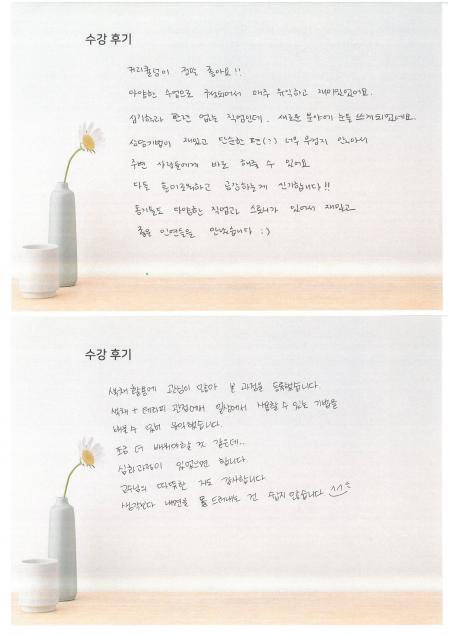 수강 후기
커리큘럼이 정말 좋아요!!
다양한 수업으로 구성되어서 매주 유익하고 재미있었어요.
심리학과 관련 없는 직업인데, 새로운 분야에 눈을 뜨게되었네요.
상담기법이 재밌고 단순한 툴(?) 너무 무겁지 않아서
주변 사람들에게 바로 해줄 수 있어요
다들 흥미로워하고 공감하는게 신기합니다!!
동기들도 다양한 직업과 스토리가 있어서 재밌고
좋은 인연들을 만났습니다 :)
수강 후기
색채활용에 관심이 많아 본 과정을 등록했습니다
색채 + 테라피 관점에서 일상에서 사용할 수 있는 기법을
배울 수 있어 유익했습니다.
조금 더 배워야할 것 같은데..
심화과정이 있었으면 합니다.
교수님의 따뜻한 지도 감사합니다
생각보다 내면을 드러내는 건 쉽지 않습니다 ^^